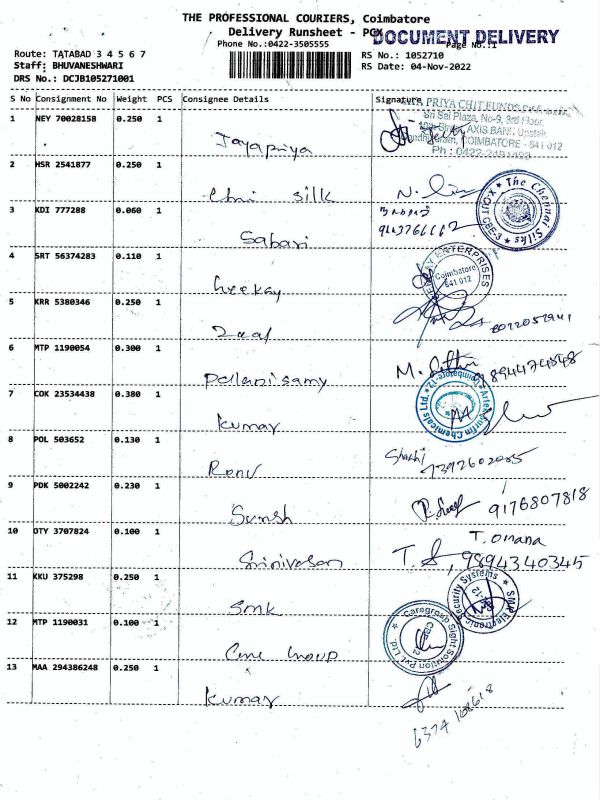 THE PROFESSIONAL COURIERS, Coimbatore
Delivery Runsheet - PCX
DOCUMENT DELIVERY
Phone No.:0422-3505555
Page No.:1
Route: TATABAD 3 4 5 6 7
RS No.: 1052710
Staff: BHUVANESHWARI
RS Date: 04-Nov-2022
DRS No.: DCJB105271001
S No Consignment No Weight PCS Consignee Details Signature
PRIYA CHIT FUNDS
Sri Sai Plaza, No-9, 3rd Floor,
AXIS BANK Upstair,
COIMBATORE - 641 012
1 NEY 70028158 0.250 1 Jayapriya
2 HSR 2541877 0.250 1 Chni silk
The Chennai Silks
CBE-3
3 KDI 777288 0.060 1 Sabari
4 SRT 56374283 0.110 1 Geekay
ENTERPRISES
Coimbatore
641 012
5 KRR 5380346 0.250 1
6 MTP 1190054 0.300 1 Pallanisamy M. 8944274548
7 COK 23534438 0.380 1 Kumar
Chemicals Ltd. Coimbatore-12
8 POL 503652 0.130 1 Renu Shashi
7392602085
9 PDK 5002242 0.230 1 Suresh 9176807818
10 OTY 3707824 0.100 1 Srinivasan T. Omana
T. S, 9894340345
11 KKU 375298 0.250 1 SMK
SMK Electronic Security Systems
12 MTP 1190031 0.100 1 Care Group
Caregroup Sight Solution Pvt Ltd.
13 MAA 294386248 0.250 1 Kumar
6374108618